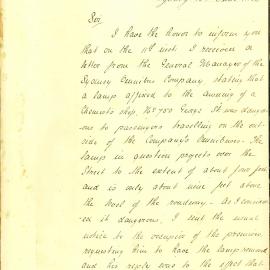 Sir,
I have the honor to inform you
that on the 11th inst. I received a
letter from the General Manager of the
Sydney Omnibus Company stating that
a lamp affixed to the awning of a
Chemists shop, No 700 George St was danger-
ous to passengers travelling on the out-
side of the Company's Omnibuses. The
lamp in question projects over the
Street to the extent of about four feet
and is only about nine feet above
the level of the roadway. As I consider-
ed it dangerous, I sent the usual
notice to the occupier of the premises
requesting him to have the lamp removed
and his reply was to the effect that